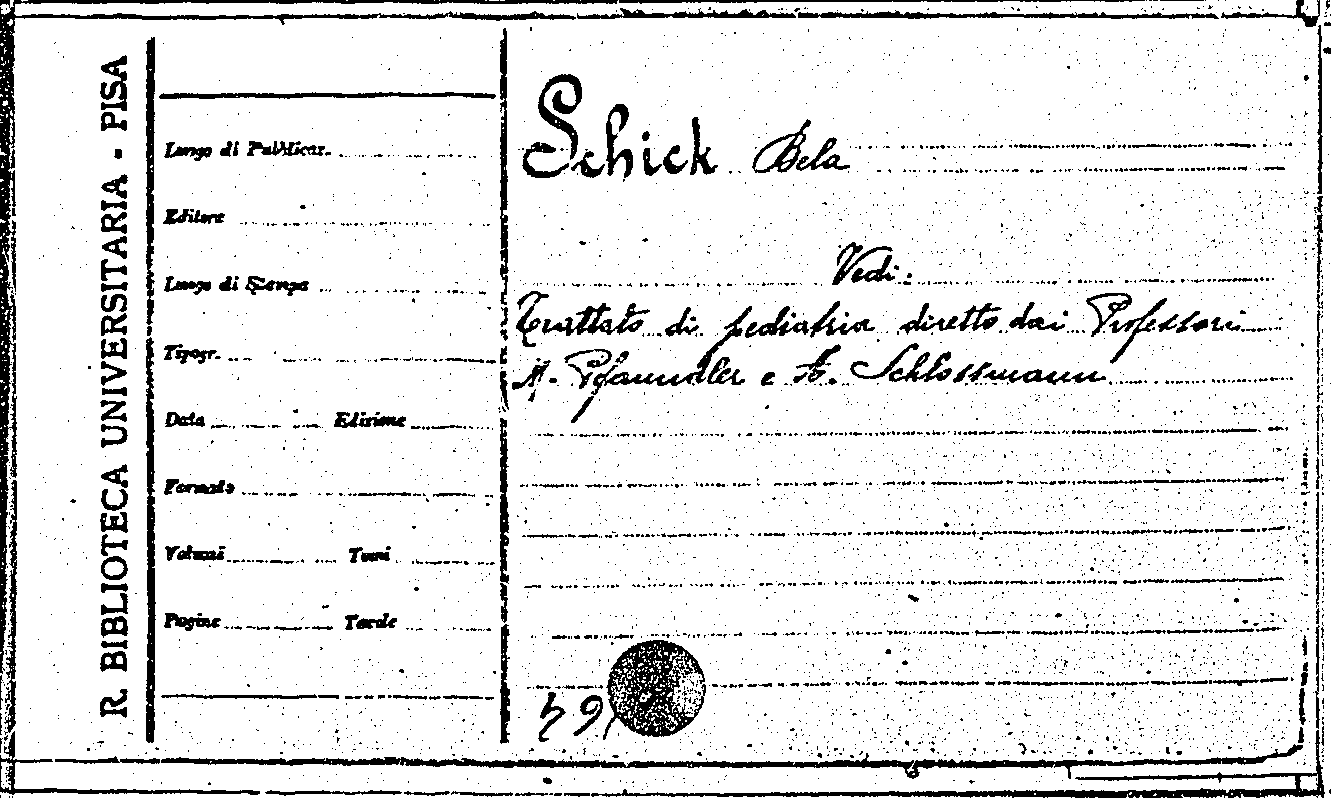 R. BIBLIOTECA UNIVERSITARIA - PISA
Luogo di Pubblicaz.
Editore
Luogo di Stampa
Tipogr.
Data Edizione
Formato
Volumi Tomi
Pagine Tavole
Schick Bela
Vedi:
Trattato di pediatria diretto dai Professori
M. Pfaundler e A. Schlossmann